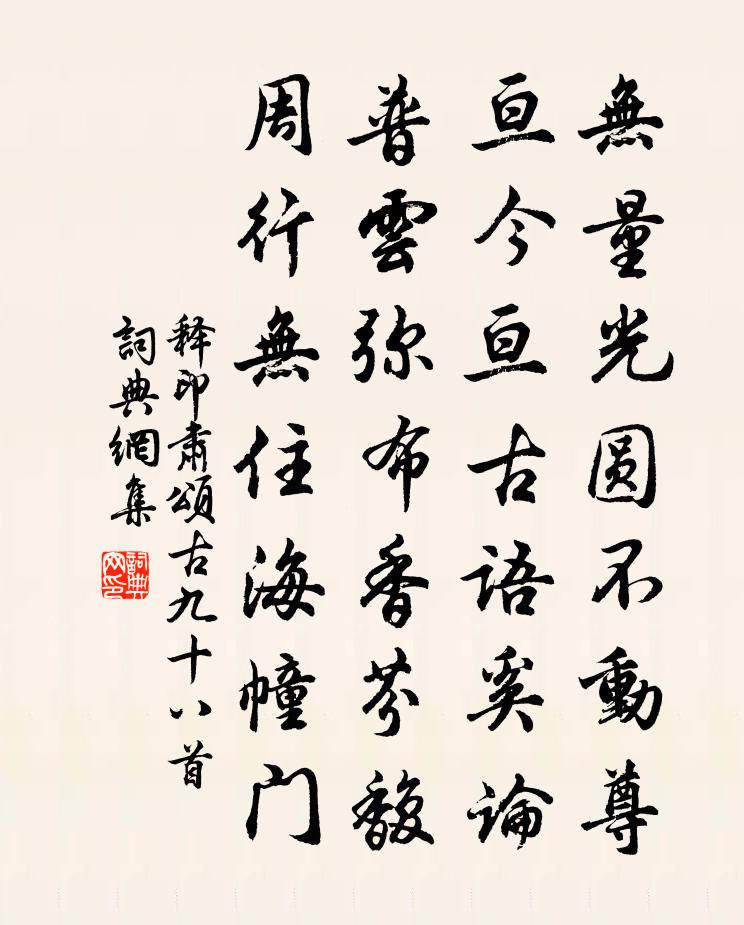 無量光圆不動尊
亘今亘古语奚論
普雲弥布香芬馥
周行無住海幢门
释印肃頌古九十八首
詞典網集
詞典网印